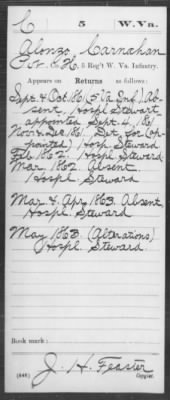 C 5 W.Va.
Alonzo, Carnahan
Co. E & H, 5 Reg't W. Va. Infantry.
Appears on Returns as follows:
Sept & Oct 1861 (5 Va Inf) Ab-
sent. Hospl Stewart
appointed Sept 4, 1861
Nov & Dec 1861.
pointed) Hosp. Steward
Feb 1862. Hospl. Steward
Mar 1862 Absent
Hospl. Steward
Mar & Apr 1863. Absent
Hospl Steward
May 1863 (Alterations)
Hospl. Steward
Book mark:
J. H. Feaster
(646) Copyist.